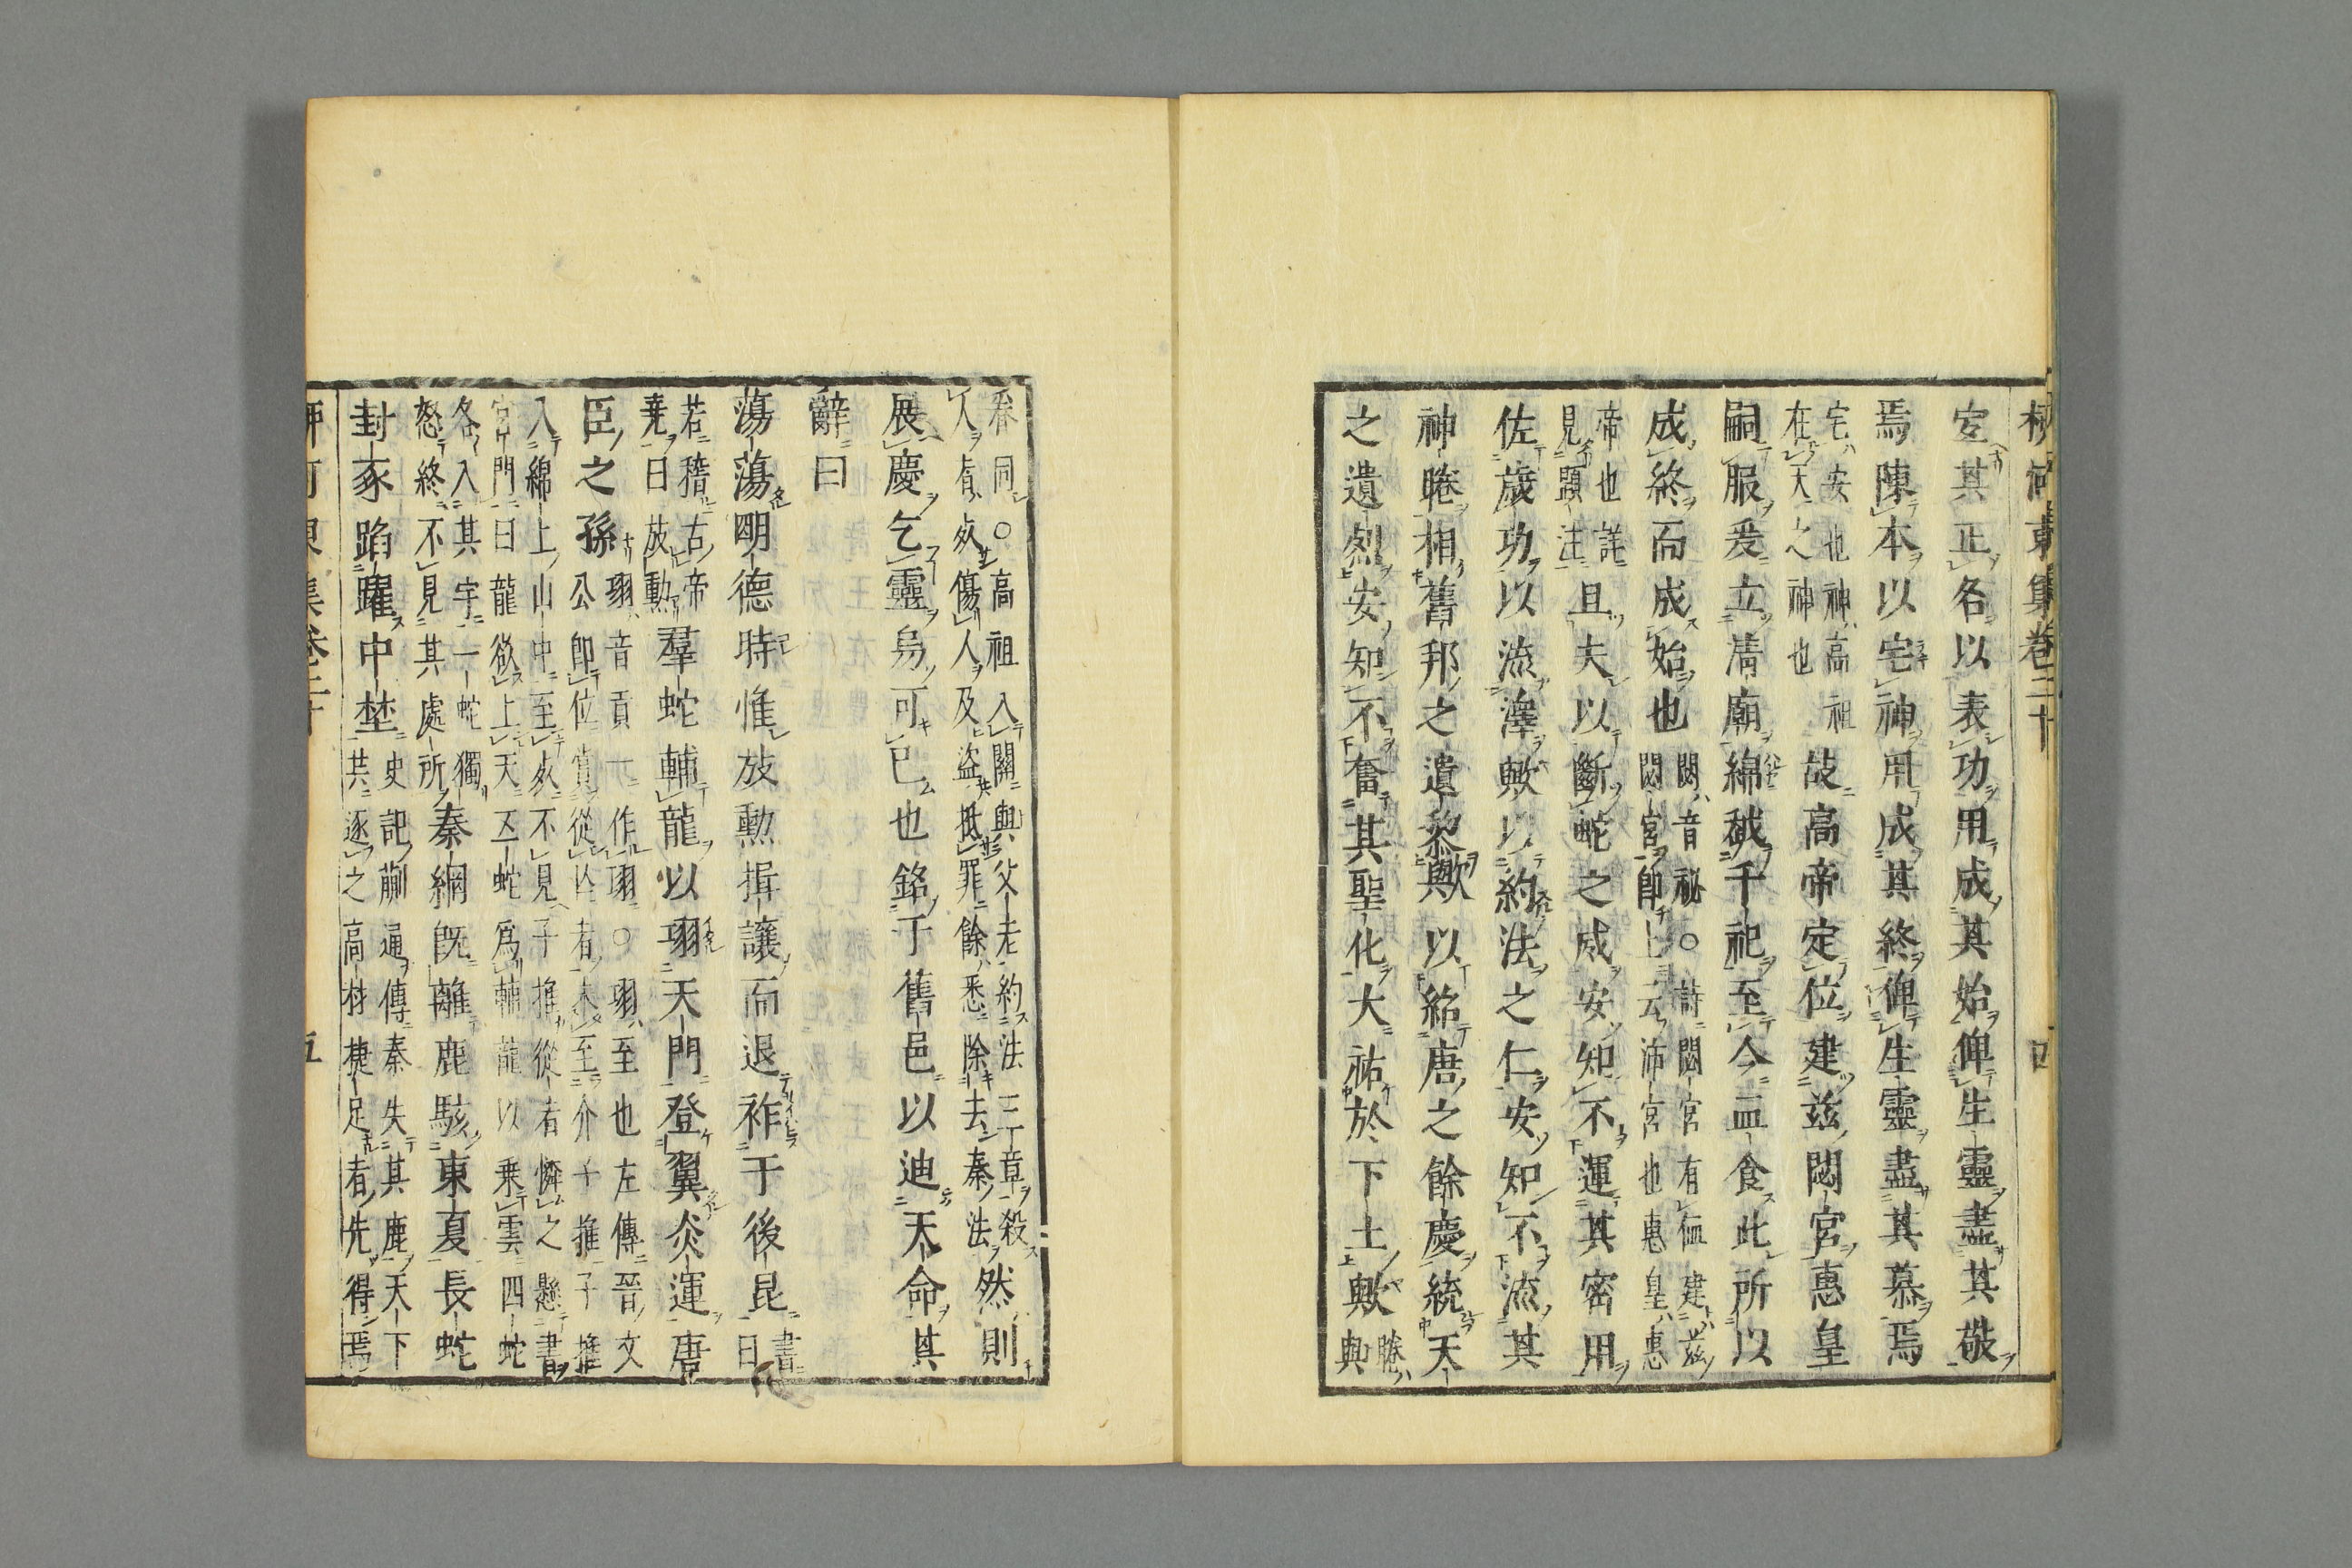 柳河東集卷二十
四
安其正各以表功用成其始俾生靈盡其敬
焉陳本以宅神用成其終俾生靈盡其慕焉
宅安也神高祖
在天之神也
故高帝定位建茲閟宮惠皇
嗣服爰立清廟綿越千祀至今血食此所以
成終而成始也
閟音祕○詩閟宮有侐建茲
閟宮即上云沛宮也惠皇惠
帝也詳
見題注
且夫以斷蛇之威安知不運其密用
佐歲功以流澤歟以約法之仁安知不流其
神睠相舊邦之遺黎歟以紹唐之餘慶統天
之遺烈安知不奮其聖化大祐於下土歟
睠
與
眷同○高祖入關與父老約法三章殺
人者処傷人及盜抵罪餘悉除去秦法
然則
展慶乞靈烏可已也銘于舊邑以迪天命其
辭曰
蕩蕩明德時惟放勲揖讓而退祚于後昆
書
曰
若稽古帝
堯曰放勲
羣蛇輔龍以翊天門登翼炎運唐
臣之孫
翊音貢一作翊○翊至也左傳晉文
公即位賞從亡者未至介子推子推
入綿上山中至処不見子推從者憐之懸書
宮門曰龍欲上天五蛇為輔龍以乗雲四蛇
各入其宇一蛇獨
怒終不見其處所
秦綱既離鹿駭東夏長蛇
封豕蹈躍中埜
史記蒯通傳秦失其鹿天下
共逐之高材捷足者先得焉
柳河東集卷二十
五